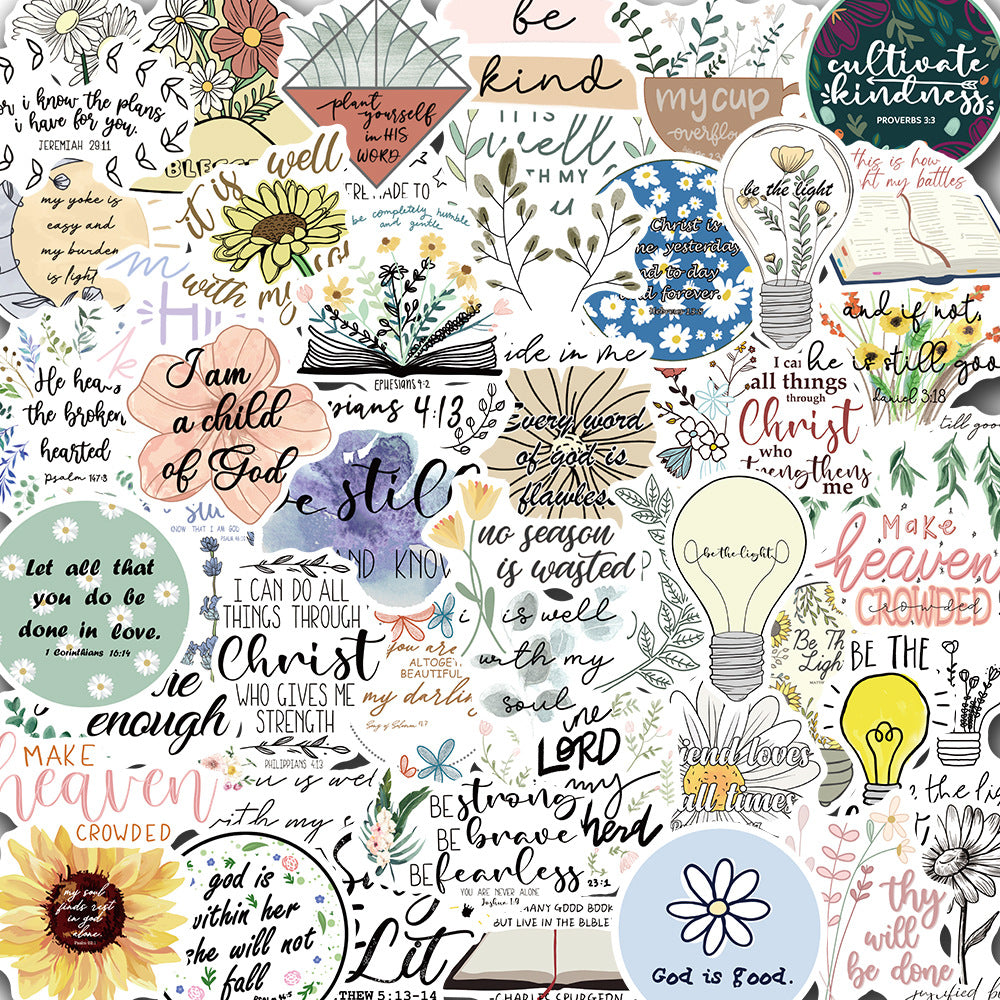 be
kind
cultivate
kindness
PROVERBS 3:3
i know the plans
i have for you.
JEREMIAH 29:11
plant
yourself
in HIS
WORD
my cup
BLESSE
it is well
with my
IT IS
well
WITH MY
ERE MADE TO
be completely humble
and gentle
EPHESIANS 4:2
be the light
this is how
my battles
Christ is
yesterday
to day
forever.
my yoke is
easy and
my burden
is light
and if not,
he is still good
daniel 3:18
till good
He hears
the broken
hearted
Psalm 147:3
I am
a child
of God
in me
4:13
Every word
of god is
flawless.
I can
all things
through
Christ
who
strengthens
me
e still
KNOW THAT I AM GOD
AND KNOW
no season
is wasted
be the light
Make
heaven
CROWDED
Let all that
you do be
done in love.
1 Corinthians 16:14
I CAN DO ALL
THINGS THROUGH
Christ
WHO GIVES ME
STRENGTH
PHILIPPIANS 4:13
you are
ALTOGET
BEAUTIFUL
my darlin
Song of Solomon 4:7
is well
with my
soul
Be Th
Light
BE THE
enough
MAKE
heaven
CROWDED
is well
with my
LORD
my
herd
23:1
friend loves
all times
the li
BE strong
BE brave
BE fearless
YOU ARE NEVER ALONE
Joshua 1:9
my soul
finds rest
in god
alone.
Psalm 62:1
god is
within her
she will not
fall
MANY GOOD BOOK
BUT LIVE IN THE BIBLE
CHARLES SPURGEON
Lit
THEW 5:13-14
God is good.
thy
will
be done